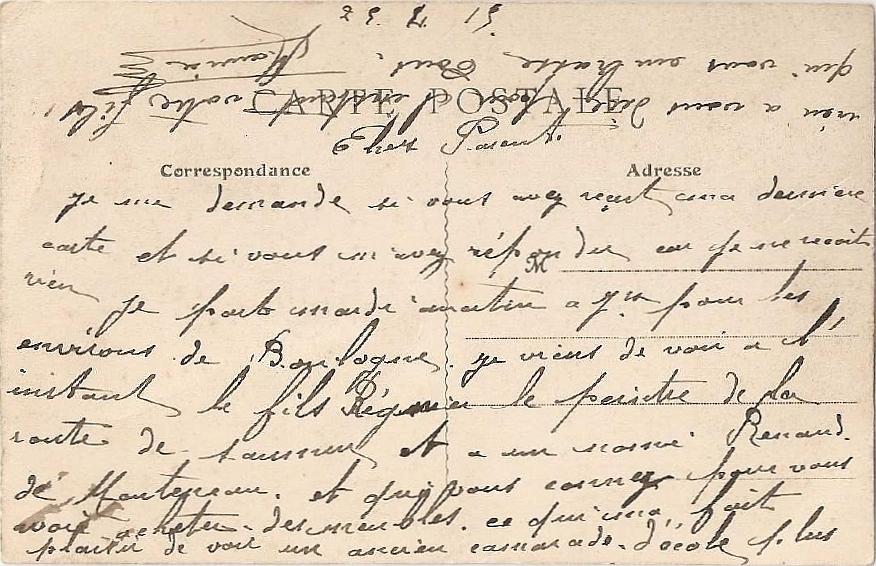 CARTE POSTALE
Correspondance
Adresse
M
Chers Parents.
Je me demande si vous avez reçut ma derniere
carte et si vous m'avez répondu car je ne recoit
rien je part mardi matin a 7h pour les
environs de Boulogne. je viens de voir a l'
instant le fils Régnier le peintre de la
route de saumur et a un nommé Renaud.
de Montereau. et qui vous connez pour vous
avoir acheter des meubles. ce qui m'a fait
plaisir de voir un ancien camarade d'école plus
rien a vous dire pour l'instant votre fils
qui vous embrasse Tous.